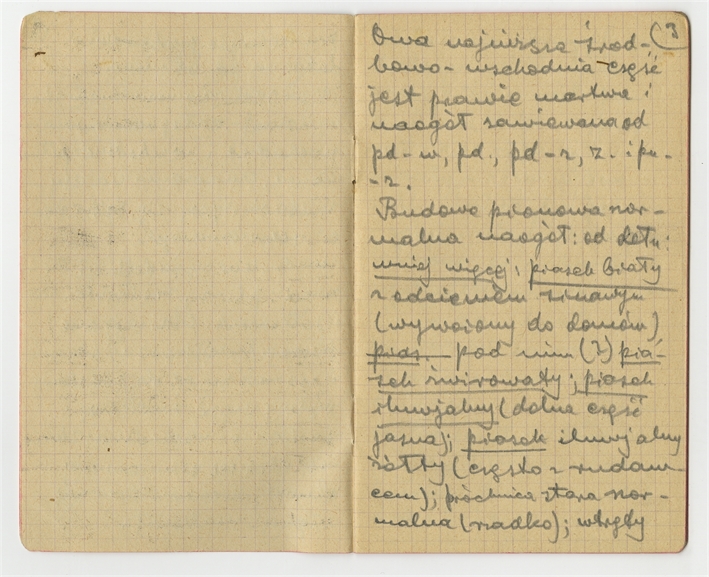 3
Owa najwyższa środ-
kowo-wschodnia część
jest prawie martwa i
naogół zawiewana od
pd-w, pd., pd-z, z. i pn.
-z.
Budowa pionowa nor-
malna naogół: od dołu:
mniej więcej: piasek biały
z odcieniem sinawym
(wywożony do domów)
pias. pod nim (?) pia-
sek żwirowaty; piasek
iluwjalny (dolna część
jasna); piasek iluwjalny
żółty (często z rudaw-
cem); próchnica stara nor-
malna (rzadko); wtręty